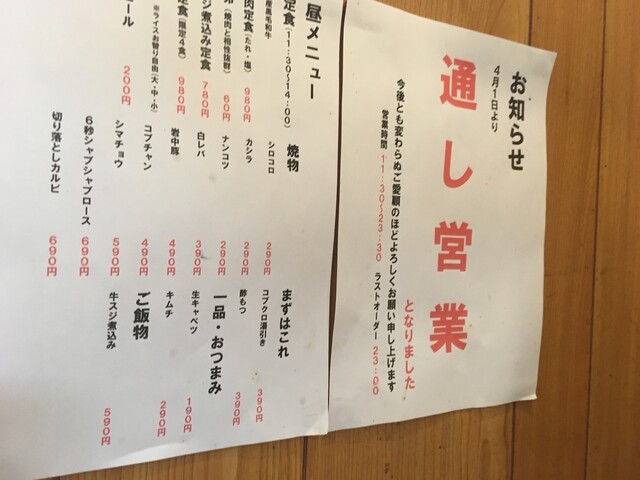 お知らせ
4月1日より
通し営業
となりました
今後とも変わらぬご愛顧のほどよろしくお願い申し上げます
営業時間 11:30~23:30 ラストオーダー 23:00
昼メニュー
定食(11:30~14:00)
産黒毛和牛
肉定食(たれ・塩) 980円
卵(焼肉と相性抜群) 60円
ジ煮込み定食 780円
定食(限定4食) 980円
※ライスお替り自由(大・中・小)
ール 200円
焼物
シロコロ 290円
カシラ 290円
ナンコツ 290円
白レバ 390円
岩中豚 490円
コプチャン 490円
シマチョウ 590円
6秒シャブシャブロース 690円
切り落としカルビ 690円
まずはこれ
コブクロ湯引き 390円
酢もつ 390円
一品・おつまみ
生キャベツ 190円
キムチ 290円
ご飯物
牛スジ煮込み 590円